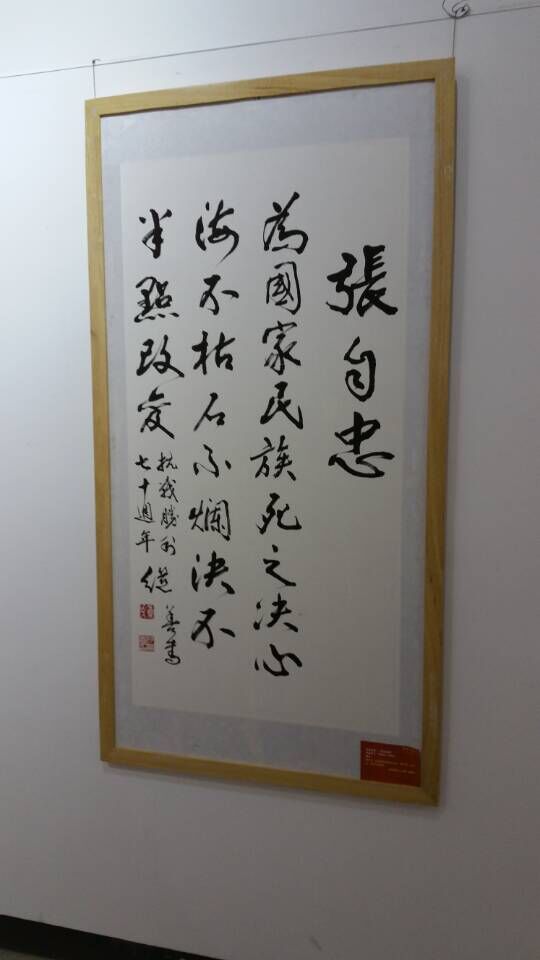 張自忠
為國家民族死之决心
海不枯石不爛決不
半點改變
抗戰勝利
七十週年
善書